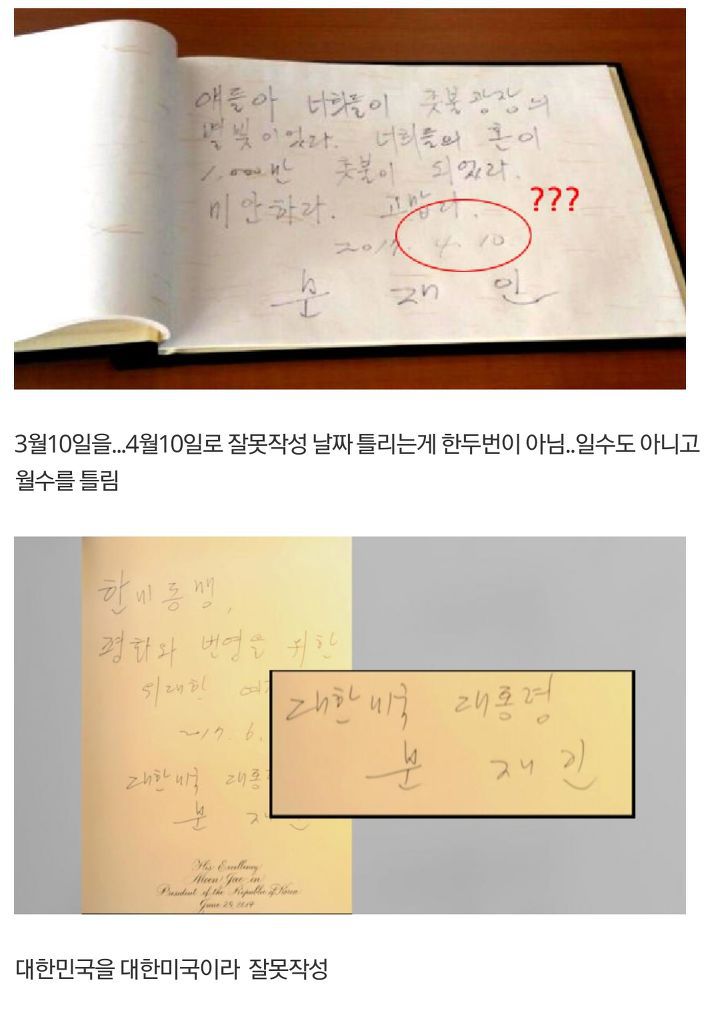 얘들아 너희들이 촛불광장의
별빛이었다. 너희들의 혼이
1,000만 촛불이 되었다.
미안하다. 고맙다.
???
2017. 4. 10
문 재 인
3월10일을...4월10일로 잘못작성 날짜 틀리는게 한두번이 아님..일수도 아니고
월수를 틀림
한미동맹,
평화와 번영을 위한
위대한 여
2017. 6.
대한미국 대통령
문 재 인
대한미국 대통
문 재인
His Excellency
Moon Jae-in
President of the Republic of Korea
June 29, 2017
대한민국을 대한미국이라 잘못작성